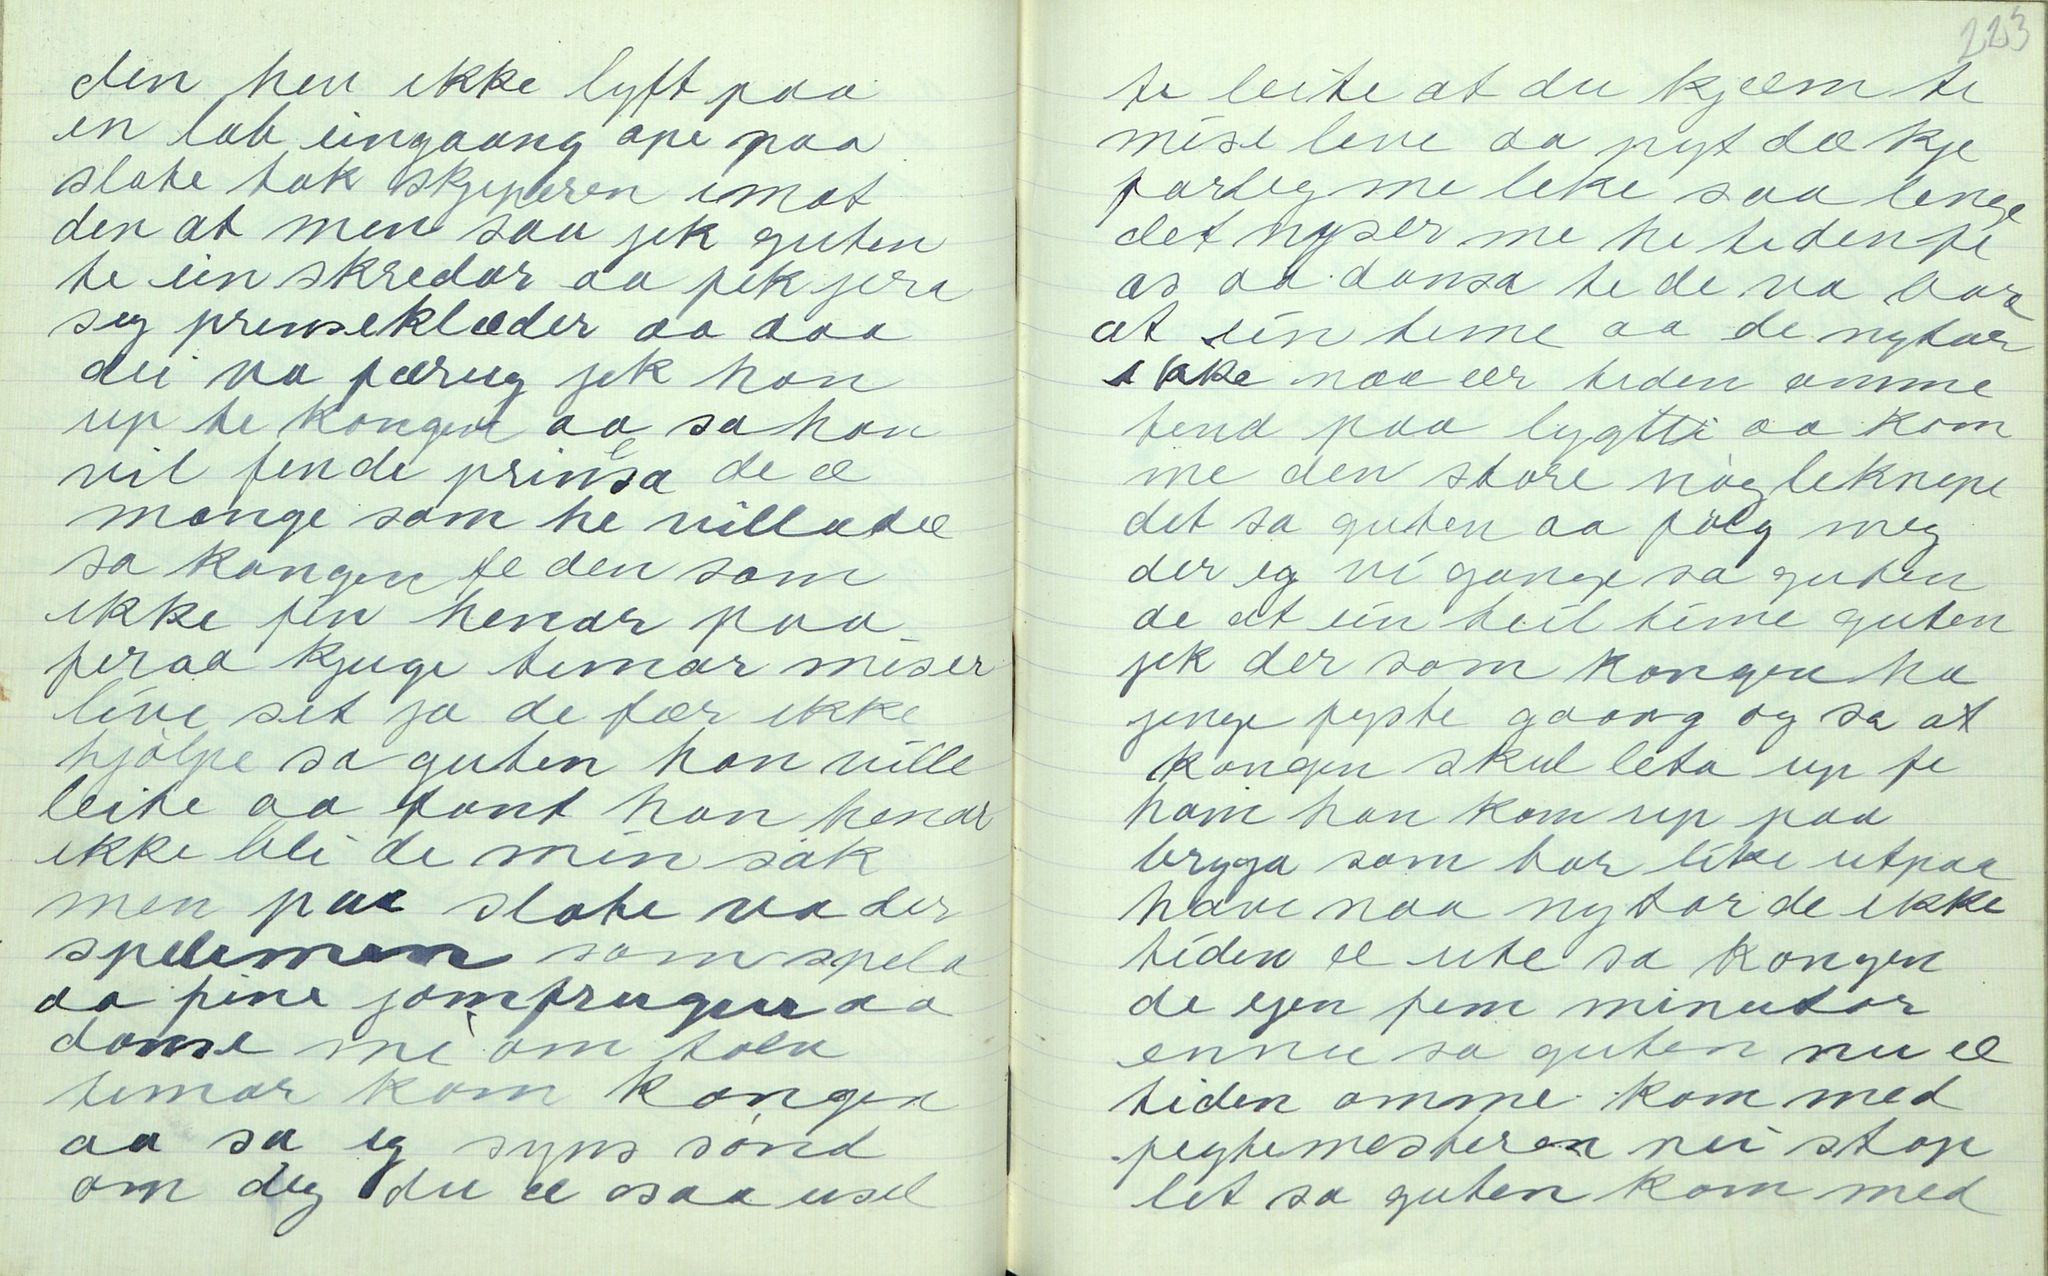 den hen ikke lyft paa
en lab eingaang ope paa
slote tok skjeperen imot
den at men saa jek guten
te ein skredar aa fek jera
seg prinseklæder aa daa
dei va færug jek han
up te kongen aa sa han
vil finde prinsesa de æ
mange som he villa de
sa kongen fe den som
ikke fin henar paa
fira kjuge temar miser
live set ja de fær ikke
hjølpe sa guten han ville
leite aa font han henar
ikke bli de min sak
men paa slote va der
spelemen som spela
aa fine jomfrugur aa
danse mi om tolv
temar kom kongen
aa sa eg syns sønd
om dig du æ osaa usel
223
te leite at du kjæm te
mise live aa pyt dæ kje
farleg me leke saa lenge
det nyser me he tiden fe
os aa dansa te de va bara
at ein time aa de nytar
ikke naa ær tiden omme
tend paa lygtti aa kom
me den store nögleknepe
det sa guten aa følg meg
der eg vi gange sa guten
de at ein heil time guten
jek der som kongen ha
jenge fyste gaang og sa at
kongen skul leta up fe
hain han kom up paa
brygga som bar like utpaa
have naa nytar de ikke
tiden æ ute sa kongen
de ejen fem minutar
ennu sa guten nu æ
tiden omme kom med
fegtemesteren nei stop
let sa guten kom med